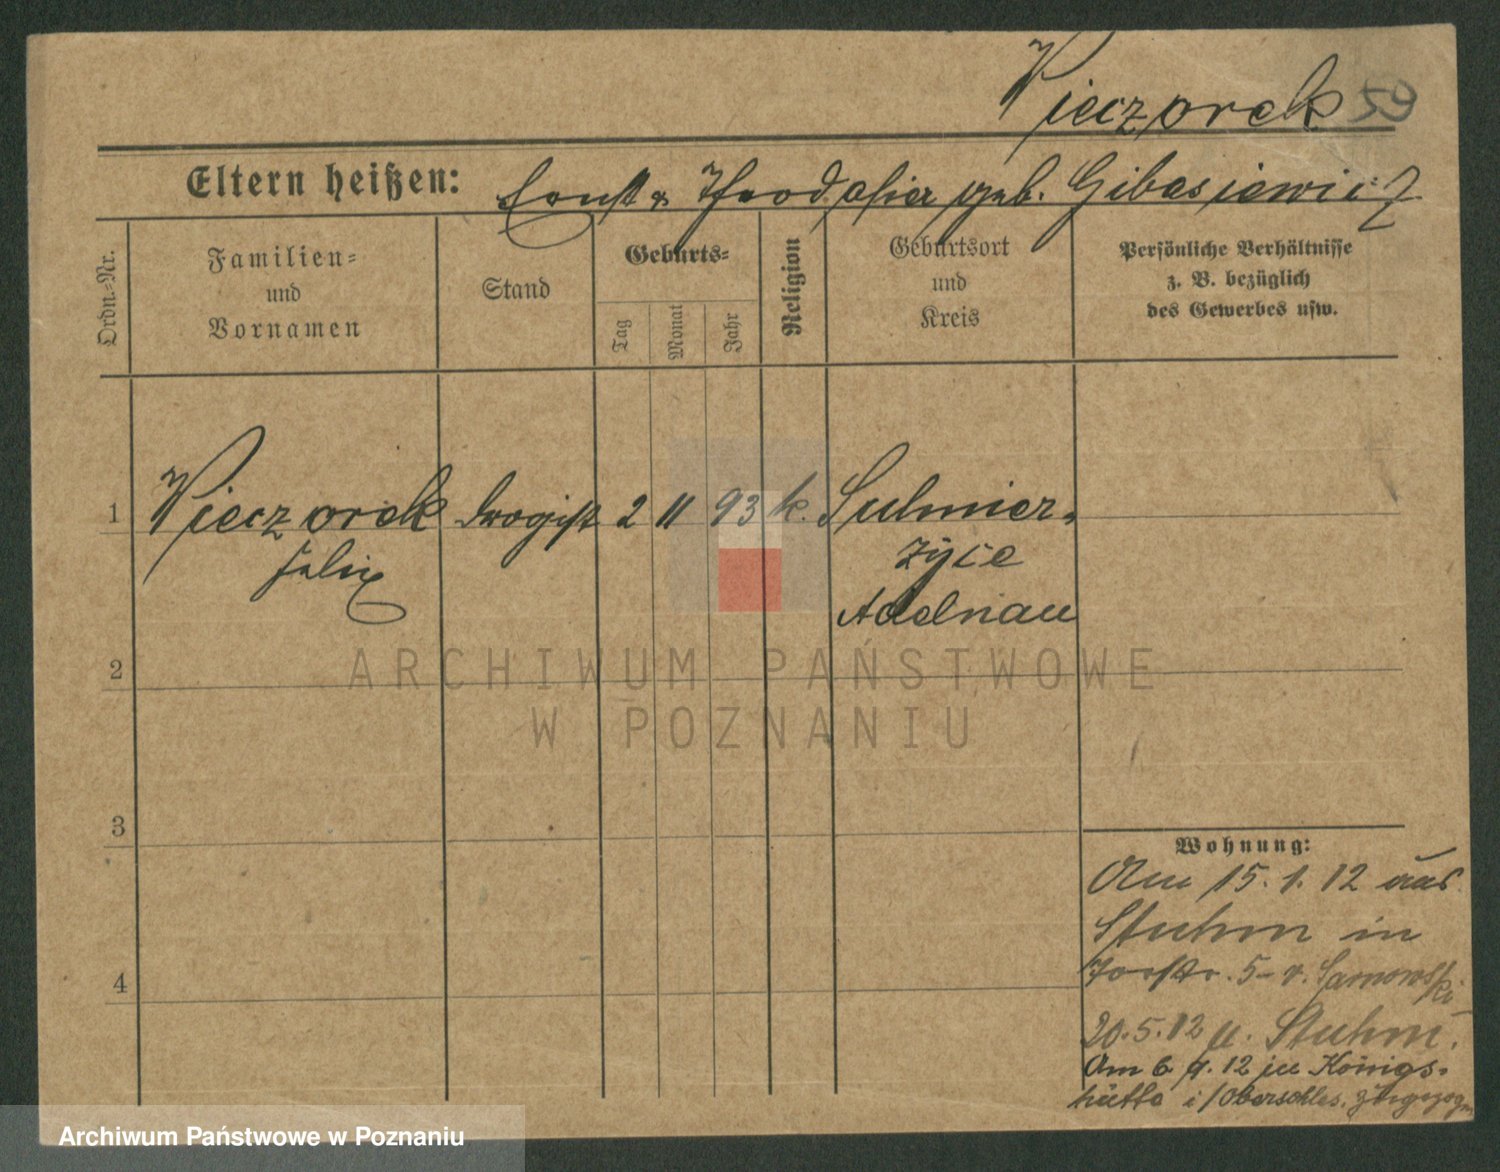 Wieczorek 59
Eltern heißen: Ernst & Theodosia geb. Gibasiewicz
Ordn.-Nr.
Familien-
und
Vornamen
Stand
Geburts-
Tag
Monat
Jahr
Religion
Geburtsort
und
Kreis
Persönliche Verhältnisse
z. B. bezüglich
des Gewerbes usw.
1 Wieczorek Drogist 2 11 93 k. Sulmier-
Felix zyce
Adelnau
2
3
4
Wohnung:
Am 15.1.12 aus
Stuhm in
Torstr. 5 - v. Sarnowski
20.5.12 n. Stuhm.
Am 6. 9. 12 in Königs-
hütte i/Oberschles. zugezogen
ARCHIWUM PAŃSTWOWE
W POZNANIU
Archiwum Państwowe w Poznaniu